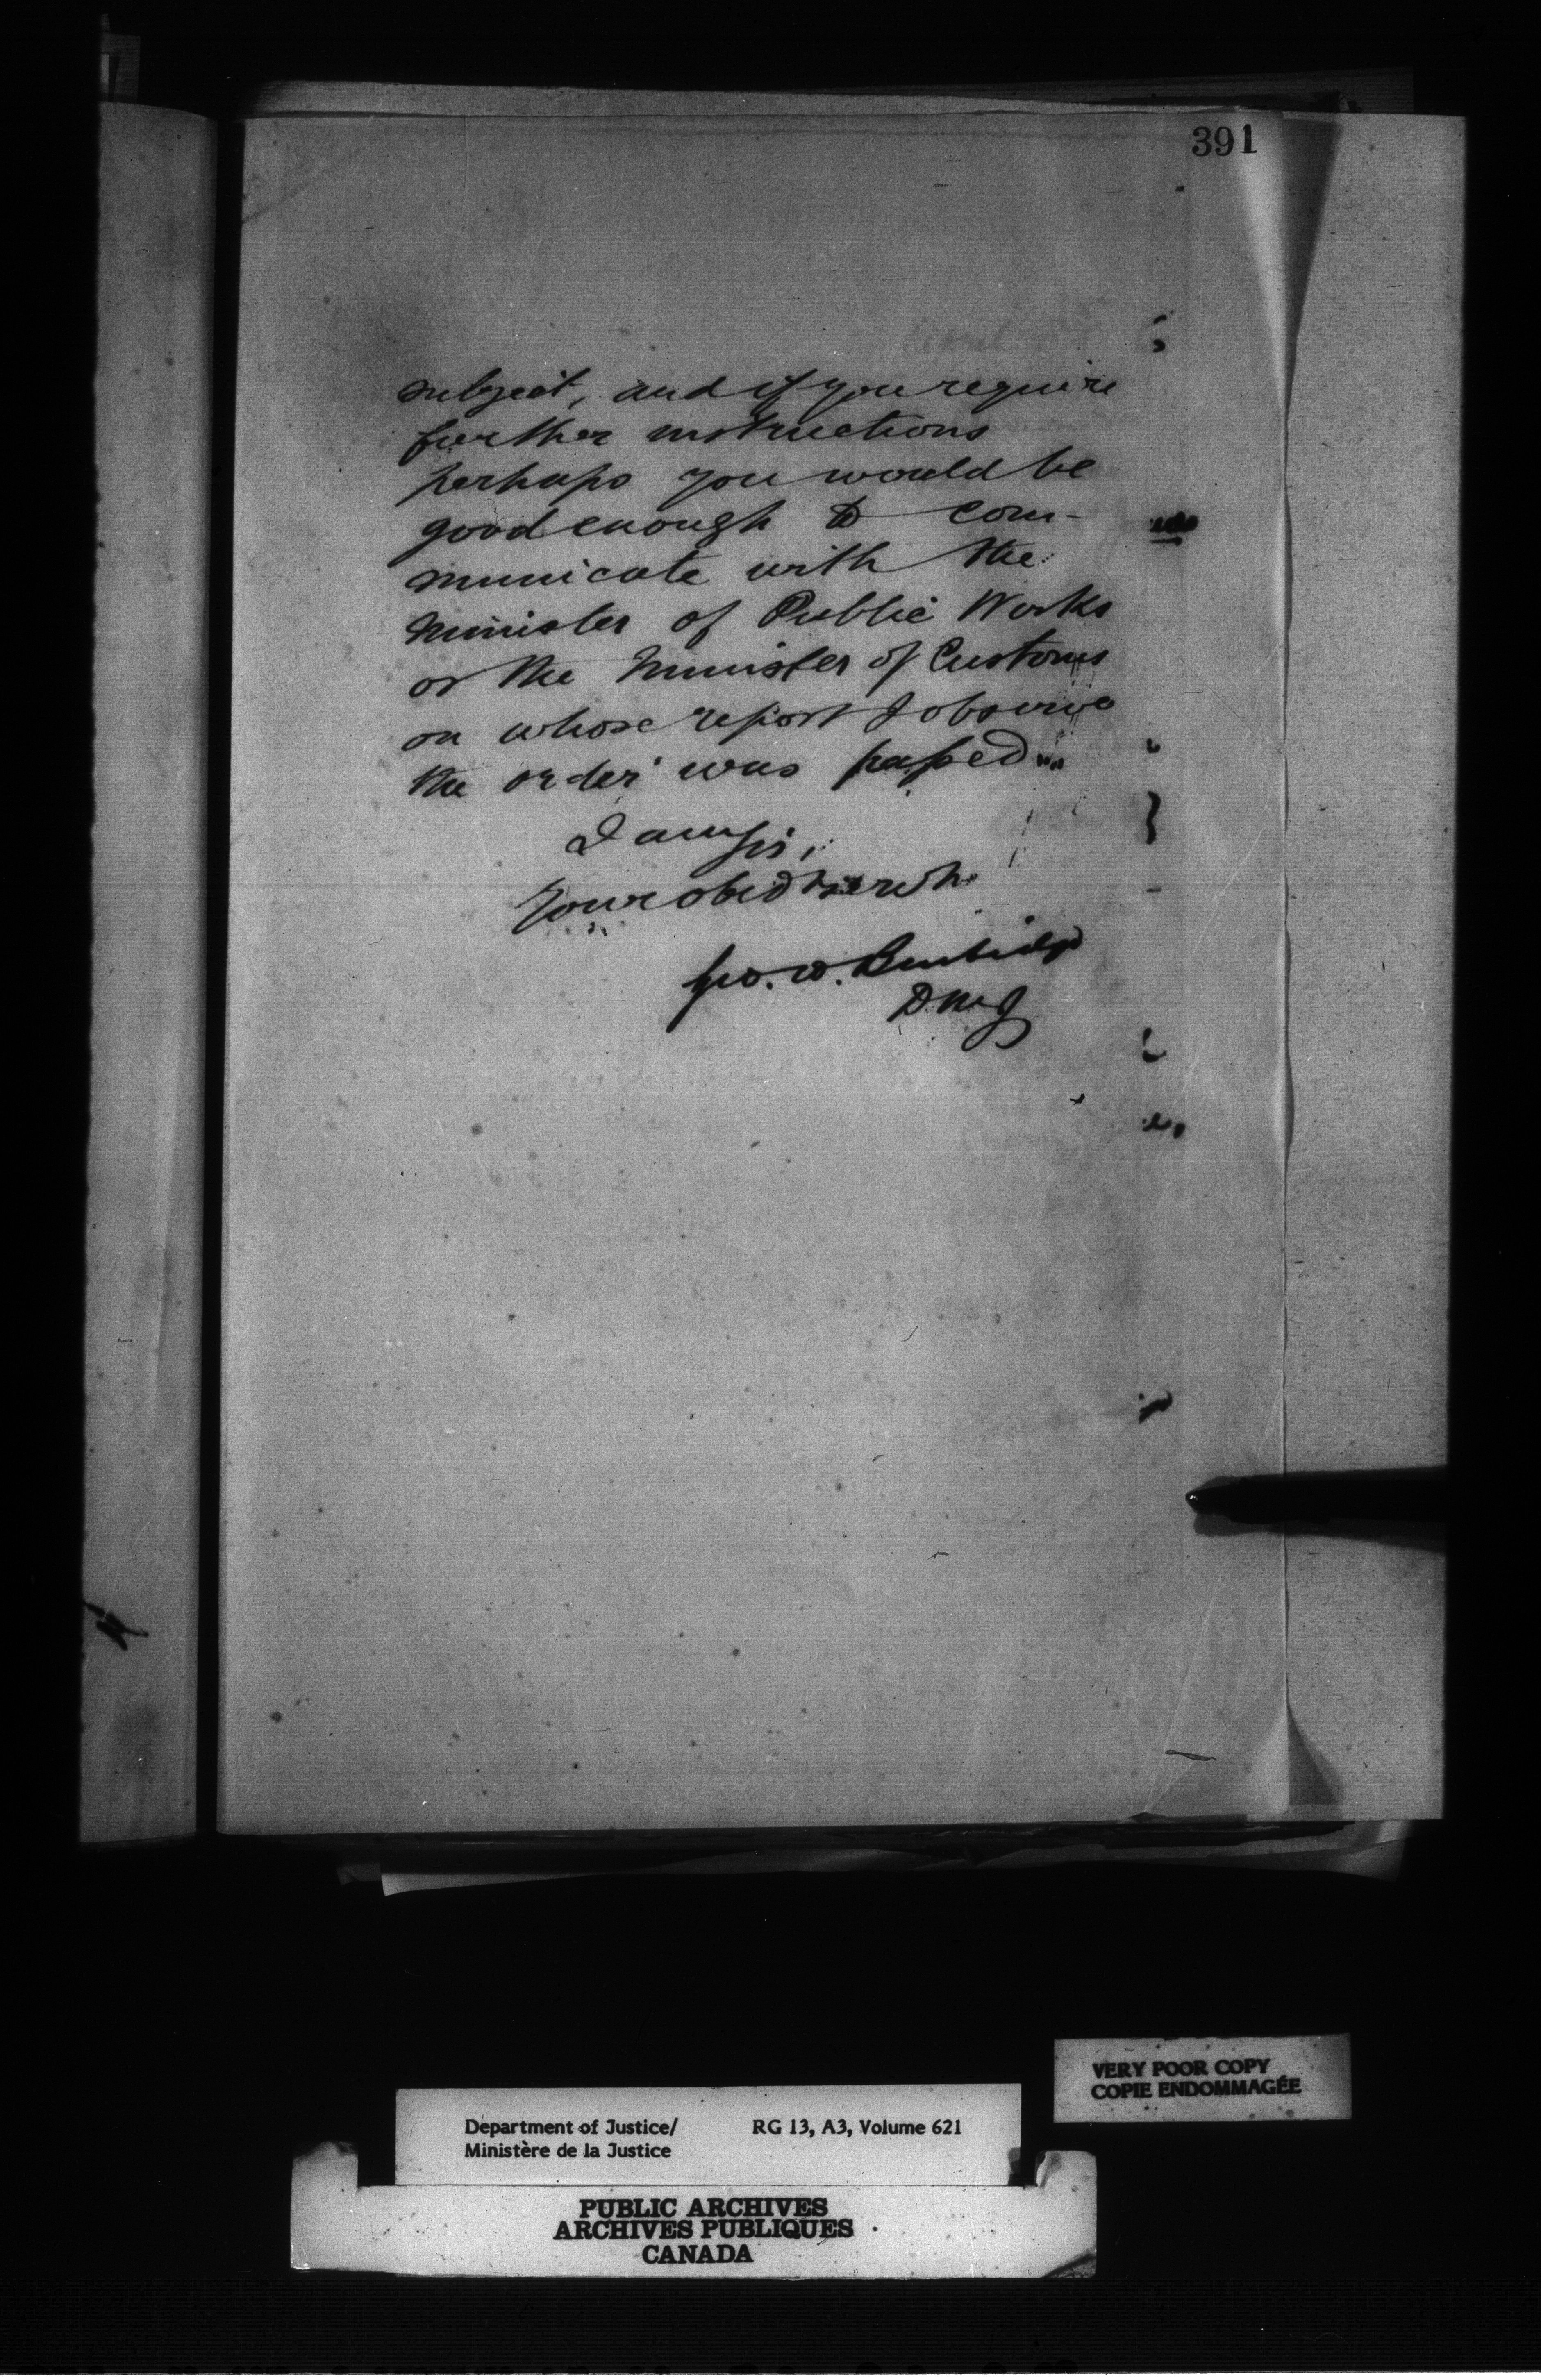 391
subject, and if you require
further instructions
perhaps you would be
good enough to com-
municate with the
Minister of Public Works
or the Minister of Customs
on whose report I observe
the order was passed.
I am Sir,
Your obedt servt.
Geo. W. Burbidge
D.M.J
VERY POOR COPY
COPIE ENDOMMAGÉE
Department of Justice/ RG 13, A3, Volume 621
Ministère de la Justice
PUBLIC ARCHIVES
ARCHIVES PUBLIQUES
CANADA